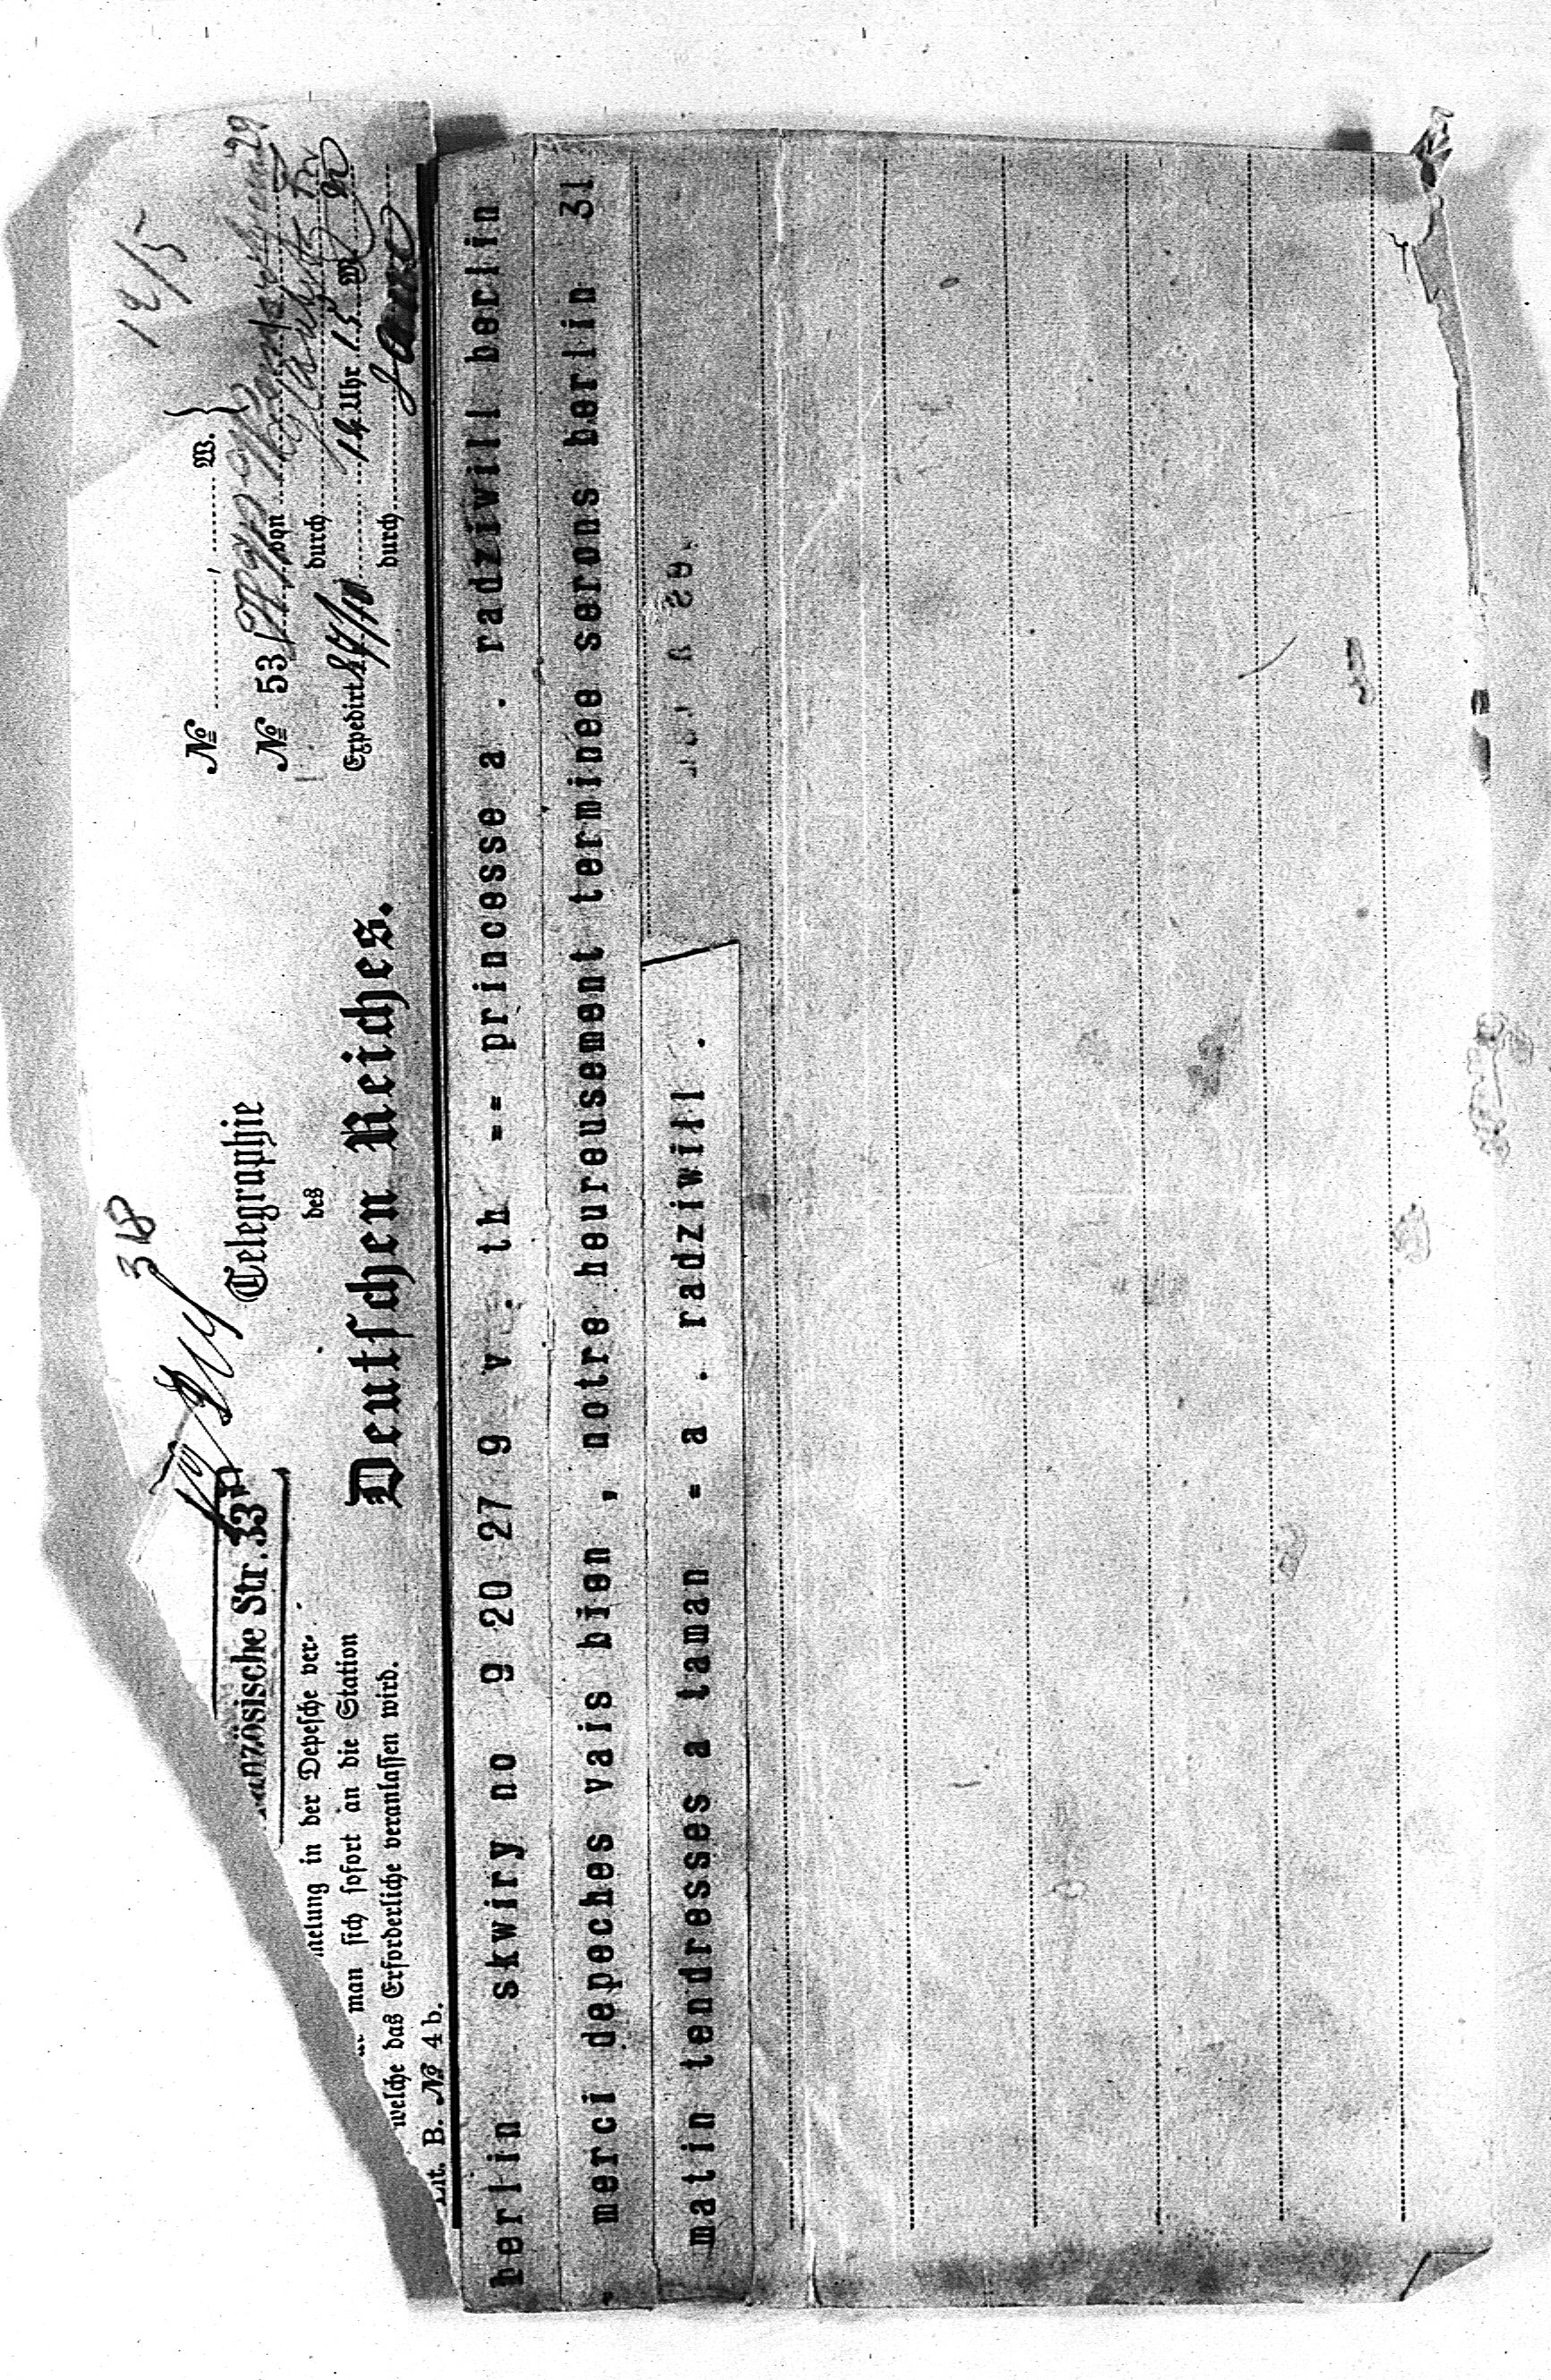 12/5
318
№ , W.
Französische Str. 33
№ 53 von
durch
Telegraphie
des
Deutschen Reiches.
Expedirt 27/10 12 Uhr 15 M
durch
melung in der Depesche ver-
man sich sofort an die Station
welche das Erforderliche veranlassen wird.
Lit. B. № 4 b.
berlin skwiry no 9 20 27 9 v . th == princesse a . radziwill berlin
- merci depeches vais bien , notre heureusement terminee serons berlin 31
matin tendresses a taman = a . radziwill .